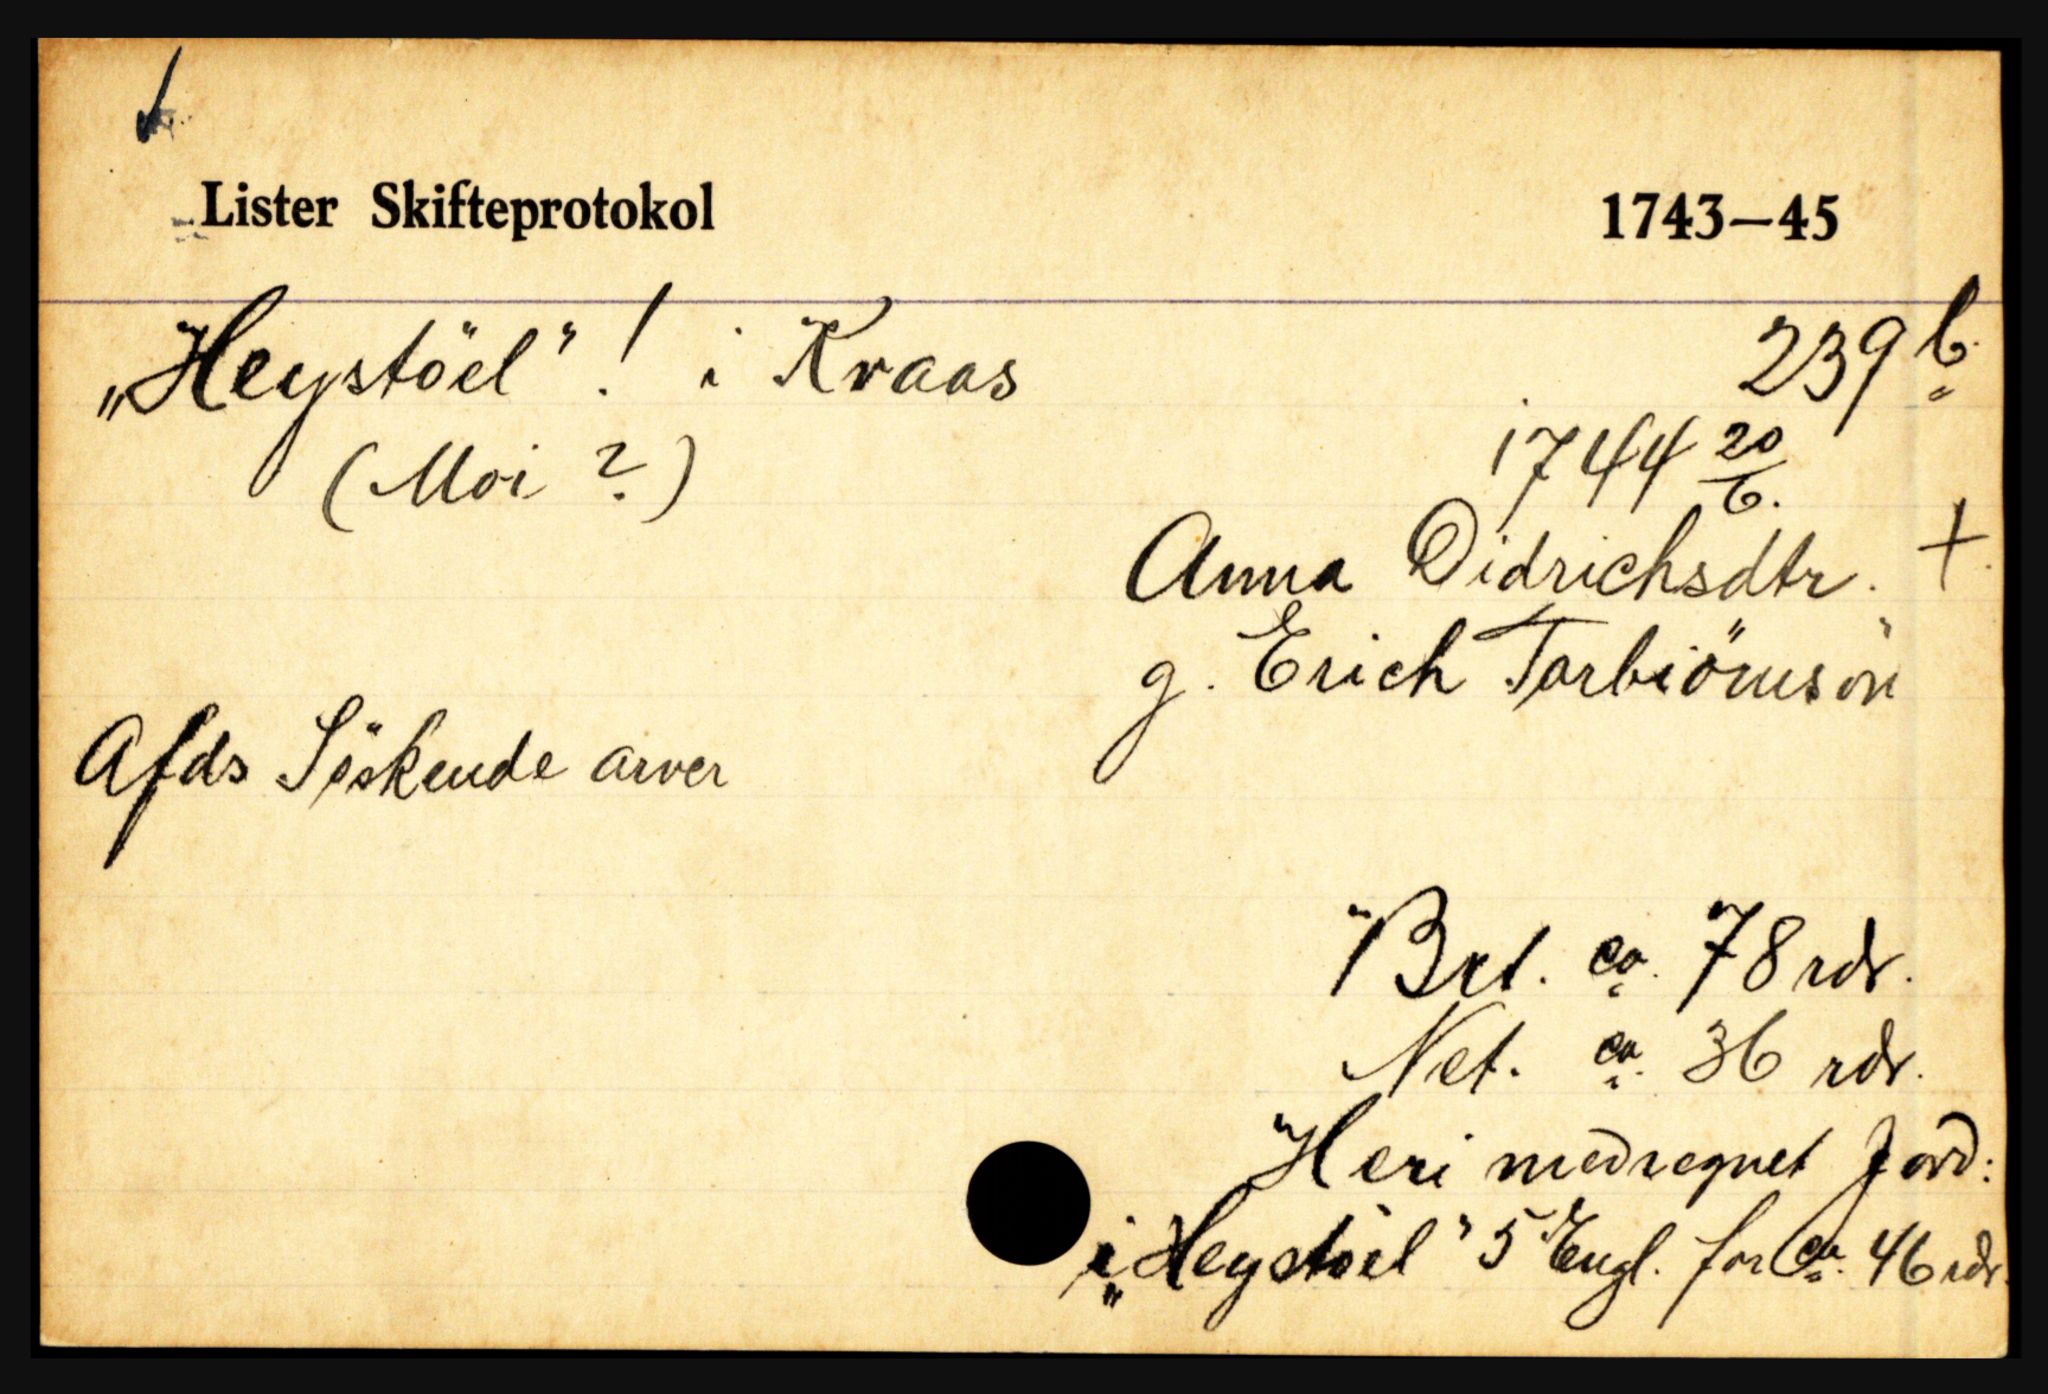 Lister Skifteprotokol 1743—45
„Heystöel"! i Kraas 239 b.
(Moi ?)
1744 20/6.
Anna Didrichsdtr. +
g. Erich Torbiörnsön
Afds Söskende arver
Brt. ca. 78 rdr.
Net. ca. 36 rdr.
Heri medregnet Jord:
i „Heystöel" 5 Engl. for ca. 46 rdr.